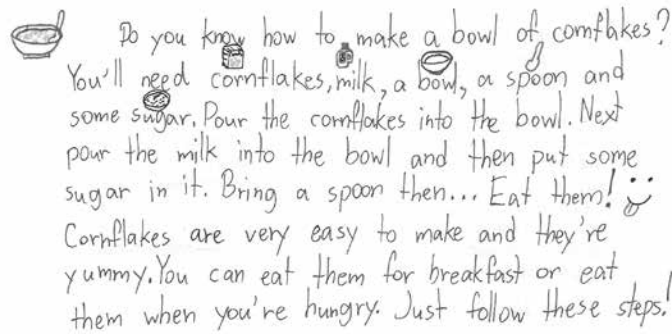 Do you know how to make a bowl of cornflakes?
You'll need cornflakes, milk, a bowl, a spoon and
some sugar. Pour the cornflakes into the bowl. Next
pour the milk into the bowl and then put some
sugar in it. Bring a spoon then... Eat them!
Cornflakes are very easy to make and they're
yummy. You can eat them for breakfast or eat
them when you're hungry. Just follow these steps!